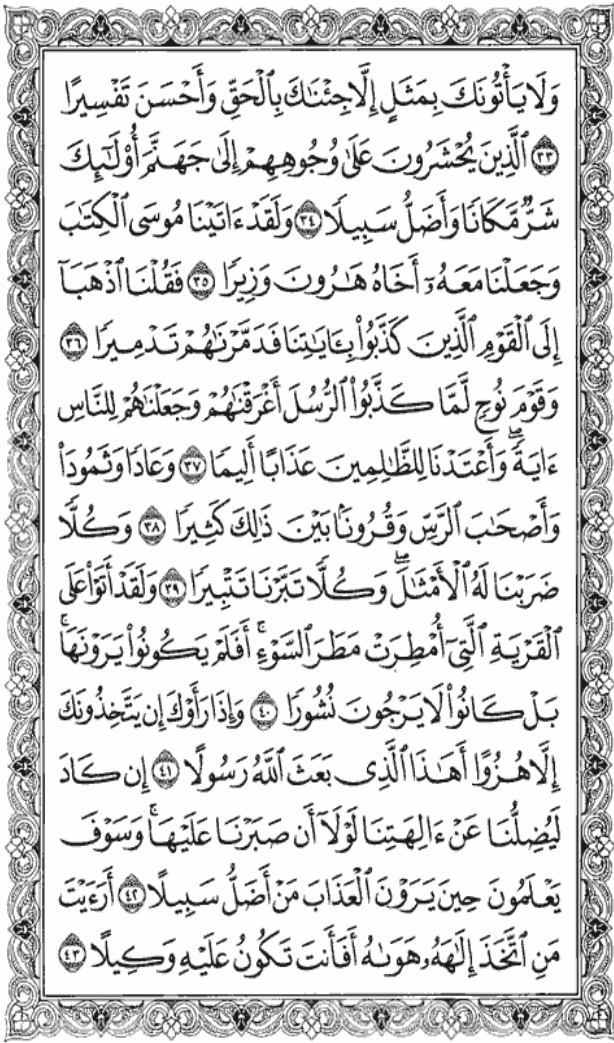 وَلَا يَأْتُونَكَ بِمَثَلٍ إِلَّا جِئْنَٰكَ بِٱلْحَقِّ وَأَحْسَنَ تَفْسِيرًا
٣٣ ٱلَّذِينَ يُحْشَرُونَ عَلَىٰ وُجُوهِهِمْ إِلَىٰ جَهَنَّمَ أُو۟لَٰٓئِكَ
شَرٌّ مَّكَانًا وَأَضَلُّ سَبِيلًا ٣٤ وَلَقَدْ ءَاتَيْنَا مُوسَى ٱلْكِتَٰبَ
وَجَعَلْنَا مَعَهُۥٓ أَخَاهُ هَٰرُونَ وَزِيرًا ٣٥ فَقُلْنَا ٱذْهَبَآ
إِلَى ٱلْقَوْمِ ٱلَّذِينَ كَذَّبُوا۟ بِـَٔايَٰتِنَا فَدَمَّرْنَٰهُمْ تَدْمِيرًا ٣٦
وَقَوْمَ نُوحٍ لَّمَّا كَذَّبُوا۟ ٱلرُّسُلَ أَغْرَقْنَٰهُمْ وَجَعَلْنَٰهُمْ لِلنَّاسِ
ءَايَةً ۖ وَأَعْتَدْنَا لِلظَّٰلِمِينَ عَذَابًا أَلِيمًا ٣٧ وَعَادًا وَثَمُودَا۟
وَأَصْحَٰبَ ٱلرَّسِّ وَقُرُونًۢا بَيْنَ ذَٰلِكَ كَثِيرًا ٣٨ وَكُلًّا
ضَرَبْنَا لَهُ ٱلْأَمْثَٰلَ ۖ وَكُلًّا تَبَّرْنَا تَتْبِيرًا ٣٩ وَلَقَدْ أَتَوْا۟ عَلَى
ٱلْقَرْيَةِ ٱلَّتِىٓ أُمْطِرَتْ مَطَرَ ٱلسَّوْءِ ۚ أَفَلَمْ يَكُونُوا۟ يَرَوْنَهَا ۚ
بَلْ كَانُوا۟ لَا يَرْجُونَ نُشُورًا ٤٠ وَإِذَا رَأَوْكَ إِن يَتَّخِذُونَكَ
إِلَّا هُزُوًا أَهَٰذَا ٱلَّذِى بَعَثَ ٱللَّهُ رَسُولًا ٤١ إِن كَادَ
لَيُضِلُّنَا عَنْ ءَالِهَتِنَا لَوْلَآ أَن صَبَرْنَا عَلَيْهَا ۚ وَسَوْفَ
يَعْلَمُونَ حِينَ يَرَوْنَ ٱلْعَذَابَ مَنْ أَضَلُّ سَبِيلًا ٤٢ أَرَءَيْتَ
مَنِ ٱتَّخَذَ إِلَٰهَهُۥ هَوَىٰهُ أَفَأَنتَ تَكُونُ عَلَيْهِ وَكِيلًا ٤٣